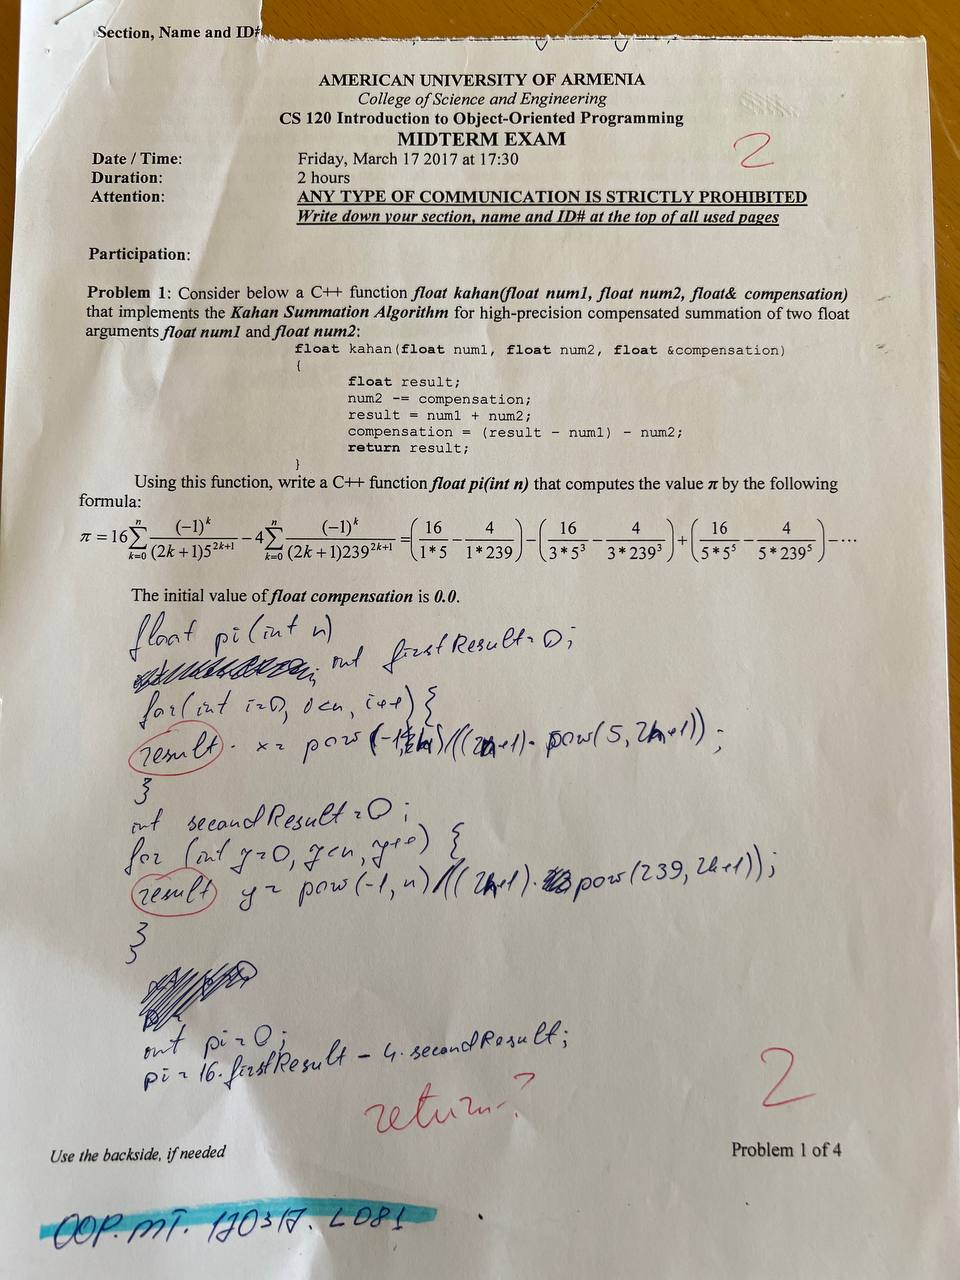 Section, Name and ID#
AMERICAN UNIVERSITY OF ARMENIA
College of Science and Engineering
CS 120 Introduction to Object-Oriented Programming
MIDTERM EXAM
2
Date / Time: Friday, March 17 2017 at 17:30
Duration: 2 hours
Attention: ANY TYPE OF COMMUNICATION IS STRICTLY PROHIBITED
Write down your section, name and ID# at the top of all used pages
Participation:
Problem 1: Consider below a C++ function float kahan(float num1, float num2, float& compensation)
that implements the Kahan Summation Algorithm for high-precision compensated summation of two float
arguments float num1 and float num2:
float kahan(float num1, float num2, float &compensation)
{
float result;
num2 -= compensation;
result = num1 + num2;
compensation = (result - num1) - num2;
return result;
}
Using this function, write a C++ function float pi(int n) that computes the value π by the following
formula:
π = 16 ∑_{k=0}^{n} (-1)^k / ((2k+1)5^{2k+1}) - 4 ∑_{k=0}^{n} (-1)^k / ((2k+1)239^{2k+1}) = (16/(1*5) - 4/(1*239)) - (16/(3*5^3) - 4/(3*239^3)) + (16/(5*5^5) - 4/(5*239^5)) - ...
The initial value of float compensation is 0.0.
float pi(int n)
int firstResult = 0;
for(int i=0, i<n, i++) {
result x = pow(-1, )/((2n+1)· pow(5, 2n+1));
}
int secondResult = 0;
for (int y=0, y<n, y++) {
result y = pow(-1, n)/((2n+1)· pow(239, 2n+1));
}
}
int pi = 0;
pi = 16·firstResult - 4·secondResult;
return?
2
Use the backside, if needed
Problem 1 of 4
OOP. MT. 170317. L081